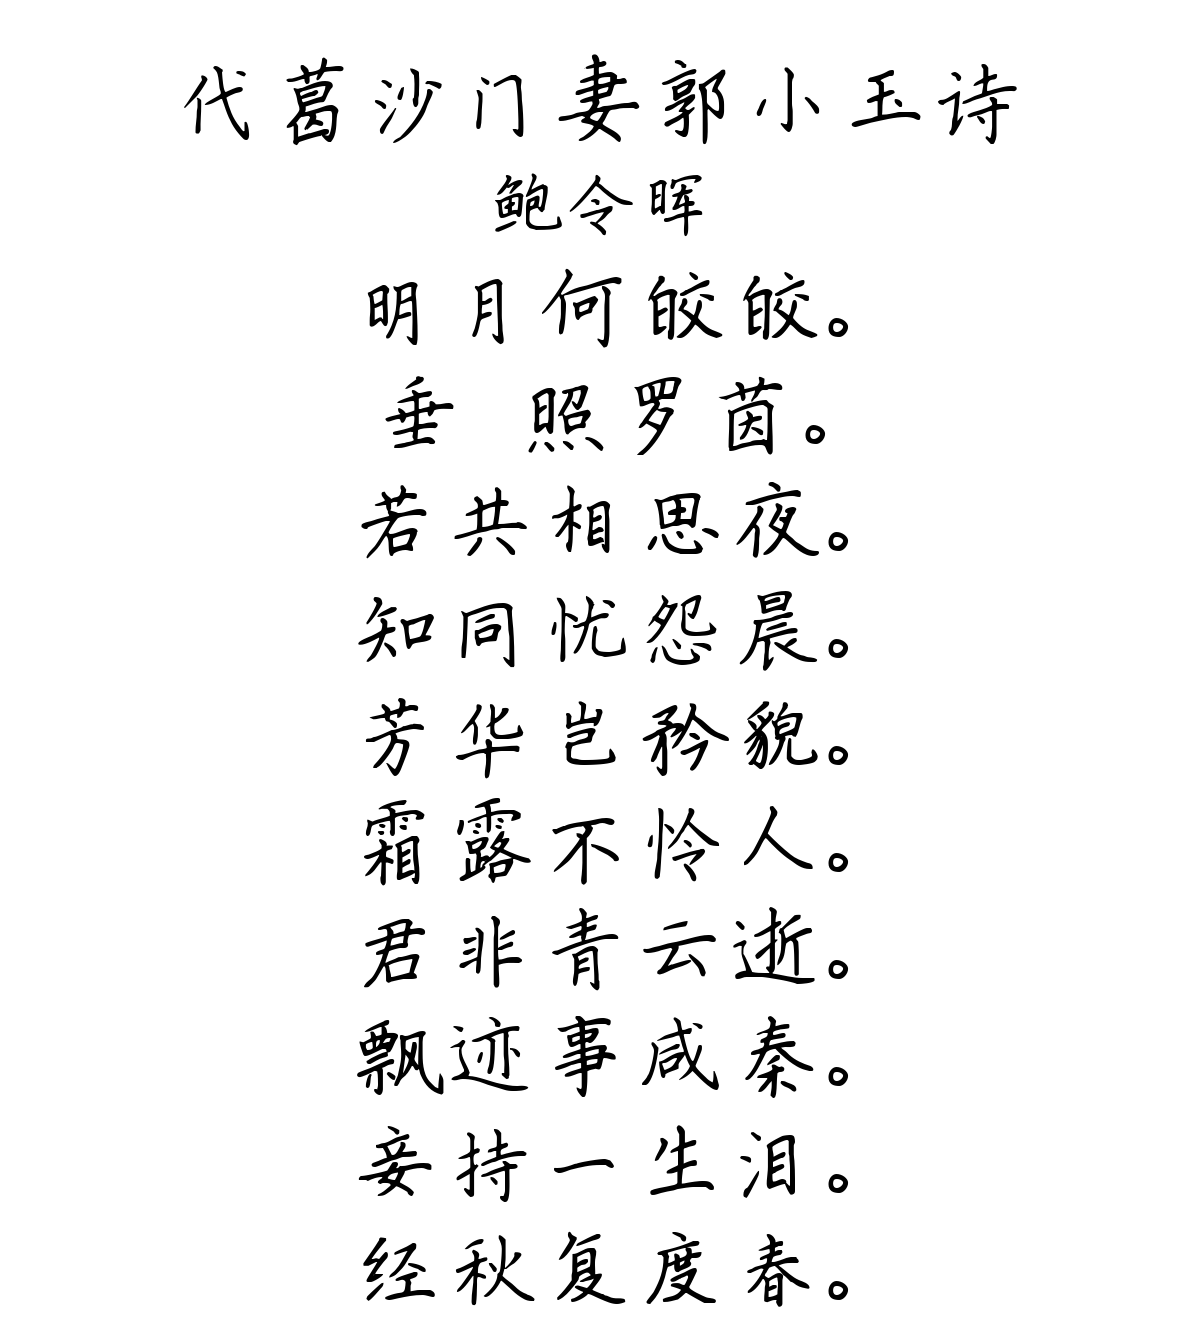 代葛沙门妻郭小玉诗
鲍令晖
明月何皎皎。
垂 照罗茵。
若共相思夜。
知同忧怨晨。
芳华岂矜貌。
霜露不怜人。
君非青云逝。
飘迹事咸秦。
妾持一生泪。
经秋复度春。